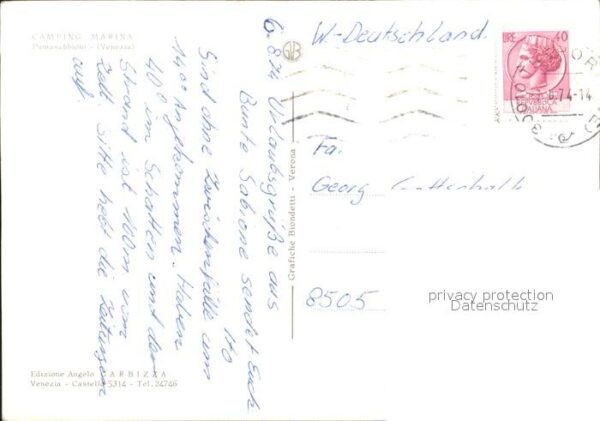 CAMPING MARINA
Puntasabbioni - (Venezia)
6.8.74 Urlaubsgrüße aus
Punte Sabione sendet Euch
Sind ohne Zwischenfälle um
14°° angekommen. Haben
40° im Schatten und der
Strand ist 100m vom
Zelt. Bitte hebt die Zeitungen
auf.
Edizione Angelo GARBIZZA
Venezia - Castello 5314 - Tel. 24746
Grafiche Biondetti - Verona
W.-Deutschland
LIRE 40
REPUBBLICA
ITALIANA
74-14
Fa.
Georg
8505
privacy protection
Datenschutz